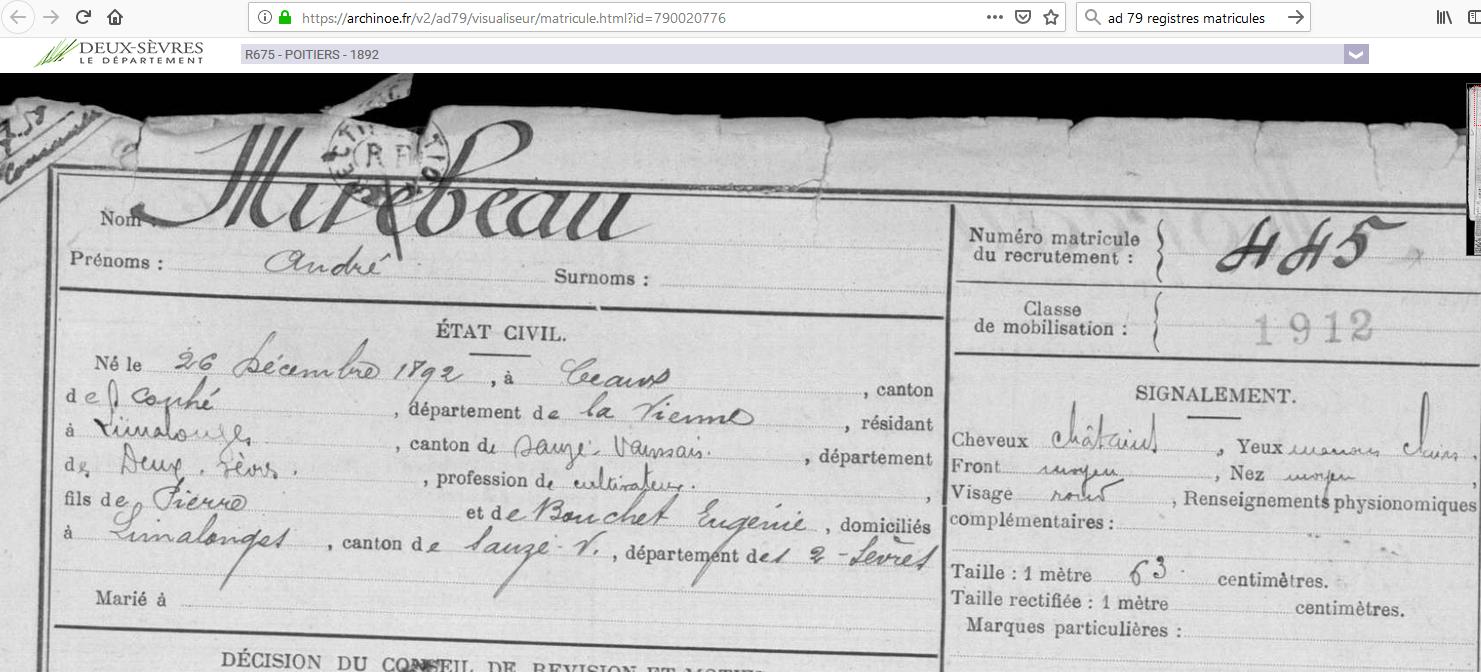 https://archinoe.fr/v2/ad79/visualiseur/matricule.html?id=790020776
ad 79 registres matricules
DEUX-SÈVRES
LE DÉPARTEMENT
R675 - POITIERS - 1892
R F
Nom Mirebeau
Prénoms : André Surnoms :
Numéro matricule
du recrutement : 445
Classe
de mobilisation : 1912
ÉTAT CIVIL.
Né le 26 Décembre 1892, à Ceaux, canton
de Couhé, département de la Vienne, résidant
à Limalonges, canton de Sauzé-Vaussais, département
des Deux-Sèvres, profession de cultivateur,
fils de Pierre et de Bouchet Eugénie, domiciliés
à Limalonges, canton de Sauzé-V., département des 2-Sèvres
Marié à
SIGNALEMENT.
Cheveux châtains, Yeux marrons clairs,
Front moyen, Nez moyen,
Visage rond, Renseignements physionomiques
complémentaires :
Taille : 1 mètre 63 centimètres.
Taille rectifiée : 1 mètre centimètres.
Marques particulières :
DÉCISION DU CONSEIL DE REVISION ET